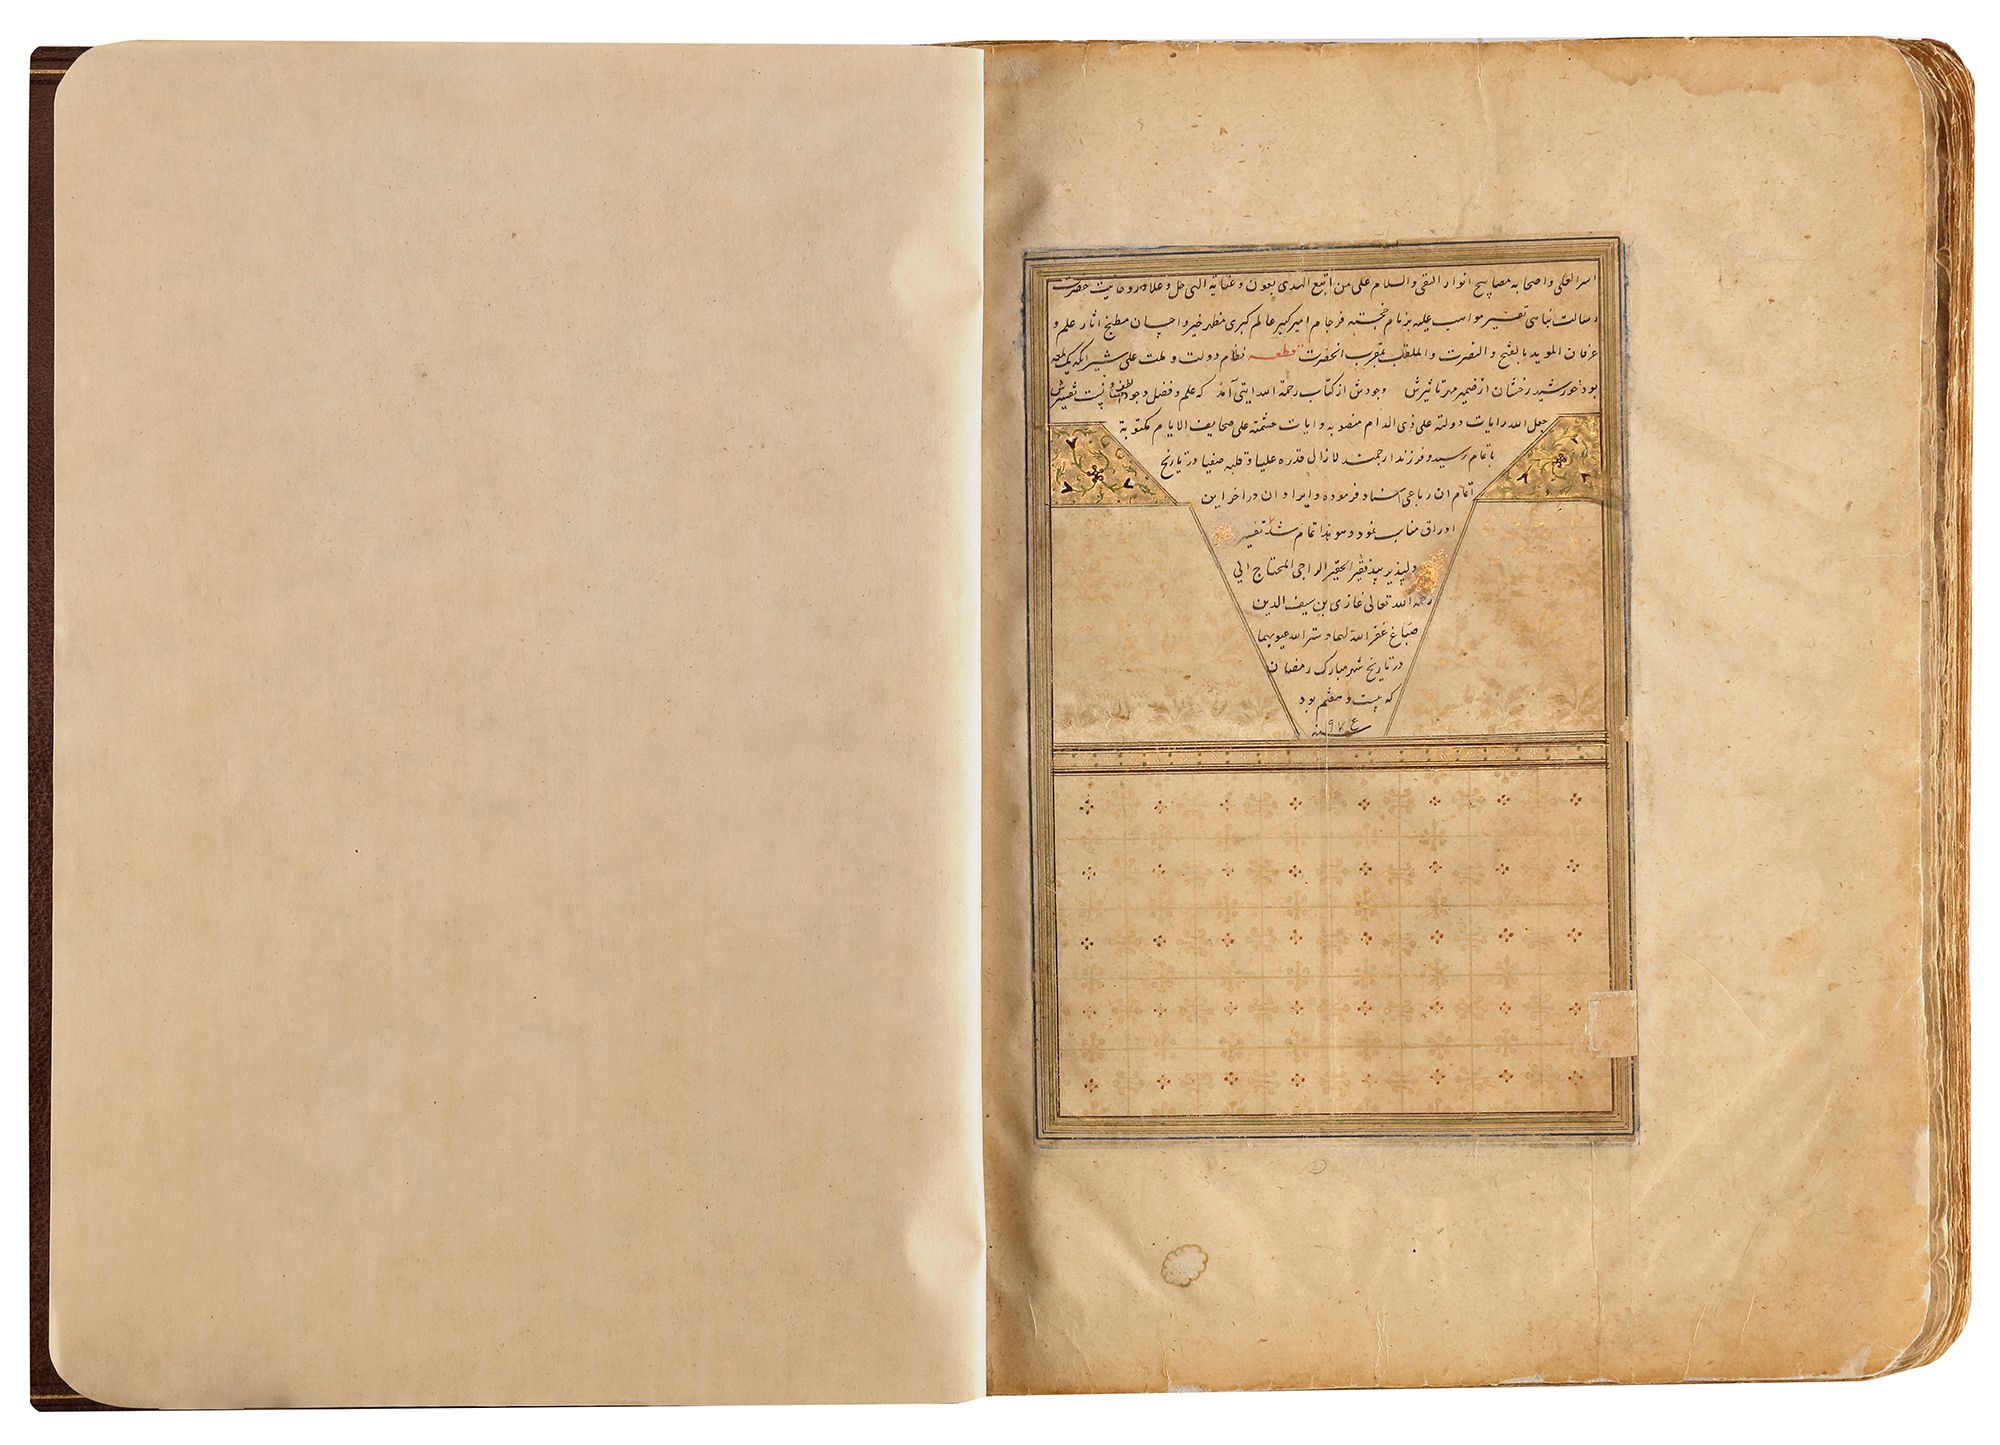 اسرا لعلی و اصحابه مصابیح انوار التقی والسلام علی من اتبع الهدی بعون و عنایة الهی جل و علا و روحانیت حضرت
رسالت پناهی تفسیر مواهب علیه بنام خجسته فرجام امیر کبیر عالم کبری مظهر خیر و احسان مطلع آثار علم و
عرفان الموید بالفتح و النصرت والملقب بمقرب الحضرت قطعه نظام دولت و ملت علی شیر آنکه یک لمعه
بود خورشید رخشان از ضمیر مهر تاثیرش وجودش از کتاب رحمة الله ایتی آمد که علم و فضل وجود لطف و تفسیرش
جعل الله رایات دولته علی ذی الدام منصوبه و ایات حشمته علی صحایف الایام مکتوبة
باتمام رسید و فرزند ارجمند لازال قدره علیا و قلبه صفیا در تاریخ
اتمام ان رباعی انشاد فرموده و ایراد ان در اخر این
اوراق مناسب نمود و هو هذا تمام شد تفسیر
دلپذیر بید فقیر الحقیر الراجی المحتاج الی
رحمه الله تعالی غازی بن سیف الدین
صباغ غفر الله لهما و ستر الله عیوبهما
در تاریخ شهر مبارک رمضان
که بیست و هفتم بود
سنه ۹۷۴